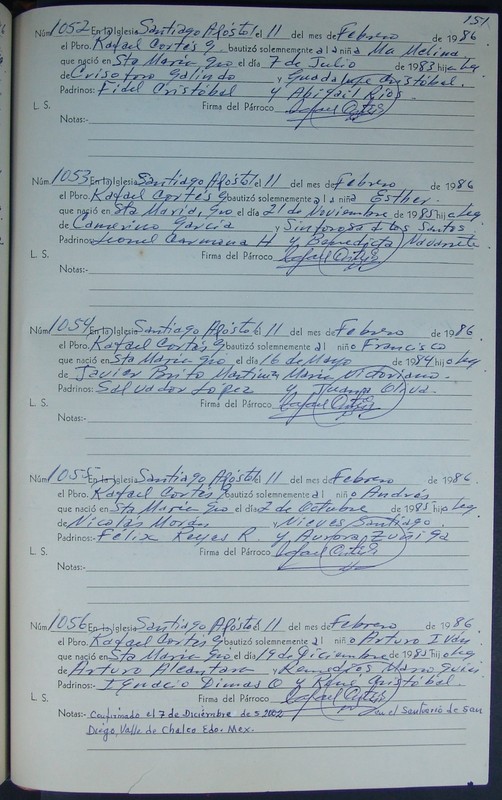 151
Núm. 1052 En la Iglesia Santiago Apóstol el 11 del mes de Febrero de 1986
el Pbro. Rafael Cortés G bautizó solemnemente a la niña Ma Melina
que nació en Sta María, Gro el día 7 de Julio de 1983 hija leg
de Crisoforo Galindo y Guadalupe Cristóbal.
Padrinos: Fidel Cristóbal y Abigail Ríos.
L. S. Firma del Párroco Rafael Cortés
Notas:-
Núm. 1053 En la Iglesia Santiago Apóstol el 11 del mes de Febrero de 1986
el Pbro. Rafael Cortés G bautizó solemnemente a la niña Esther.
que nació en Sta María, Gro el día 21 de Noviembre de 1985 hija leg
de Camerino García y Sinforosa de los Santos
Padrinos: Leonel Carmona H y Benedicta Navarrete
L. S. Firma del Párroco Rafael Cortés
Notas:-
Núm. 1054 En la Iglesia Santiago Apóstol el 11 del mes de Febrero de 1986
el Pbro. Rafael Cortés G bautizó solemnemente al niño Francisco
que nació en Sta María Gro el día 16 de Mayo de 1984 hijo leg
de Javier Brito Martínez María Victoriano.
Padrinos: Salvador López y Juana Oliva.
L. S. Firma del Párroco Rafael Cortés
Notas:-
Núm. 1055 En la Iglesia Santiago Apóstol el 11 del mes de Febrero de 1986
el Pbro. Rafael Cortés G bautizó solemnemente al niño Andrés
que nació en Sta María Gro el día 2 de Octubre de 1985 hijo leg
de Nicolás Morán y Nieves Santiago.
Padrinos:- Félix Reyes R. y Aurora Zuñiga
L. S. Firma del Párroco Rafael Cortés
Notas:-
Núm. 1056 En la Iglesia Santiago Apóstol el 11 del mes de Febrero de 1986
el Pbro. Rafael Cortés G bautizó solemnemente al niño Arturo Iván
que nació en Sta María Gro el día 19 de Diciembre de 1985 hijo leg
de Arturo Alcantara y Remedios
Padrinos:- Ignacio Dimas O y René Cristóbal.
L. S. Firma del Párroco Rafael Cortés
Notas:- Confirmado el 7 de Diciembre de 2002 en el Santuario de San
Diego, Valle de Chalco Edo. Mex.